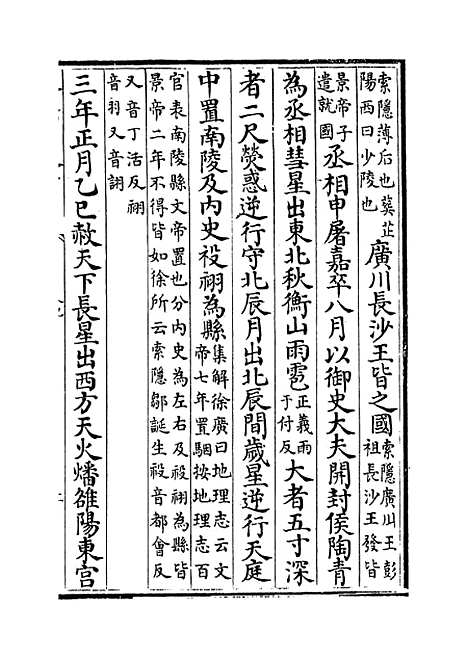 索隱薄后也葬芷
陽西曰少陵也
廣川長沙王皆之國
索隱廣川王彭
祖長沙王發皆
景帝子
遣就國
丞相申屠嘉卒八月以御史大夫開封侯陶青
為丞相彗星出東北秋衡山雨雹
正義雨
于付反
大者五寸深
者二尺熒惑逆行守北辰月出北辰間歲星逆行天庭
中置南陵及内史祋祤為縣
集解徐廣曰地理志云文
帝七年置駰按地理志百
官表南陵縣文帝置也分内史為左右及祋祤為縣皆
景帝二年不得皆如徐所云索隱鄒誕生祋音都會反
又音丁活反祤
音羽又音詡
三年正月乙巳赦天下長星出西方天火燔雒陽東宮